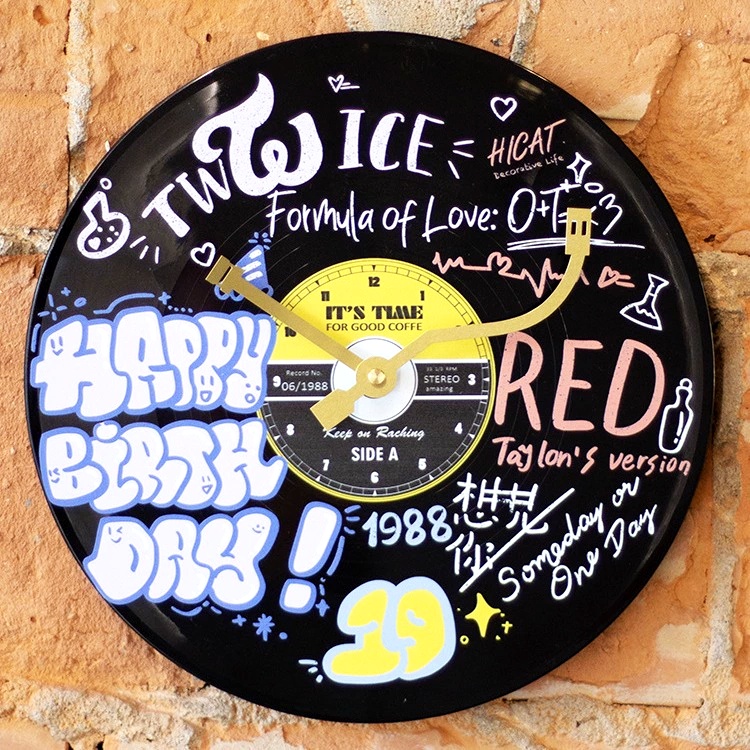 TWICE
HICAT
Decorative Life
Formula of Love: O+T=<3
12
11
1
10
IT'S TIME
FOR GOOD COFFE
HAPPY
BIRTH
DAY!
Record No.
06/1988
33 1/3 RPM
STEREO
amazing
9
3
Keep on Raching
SIDE A
8
4
7
5
6
RED
Taylon's version
1988
想見
你
Someday or
One Day
19